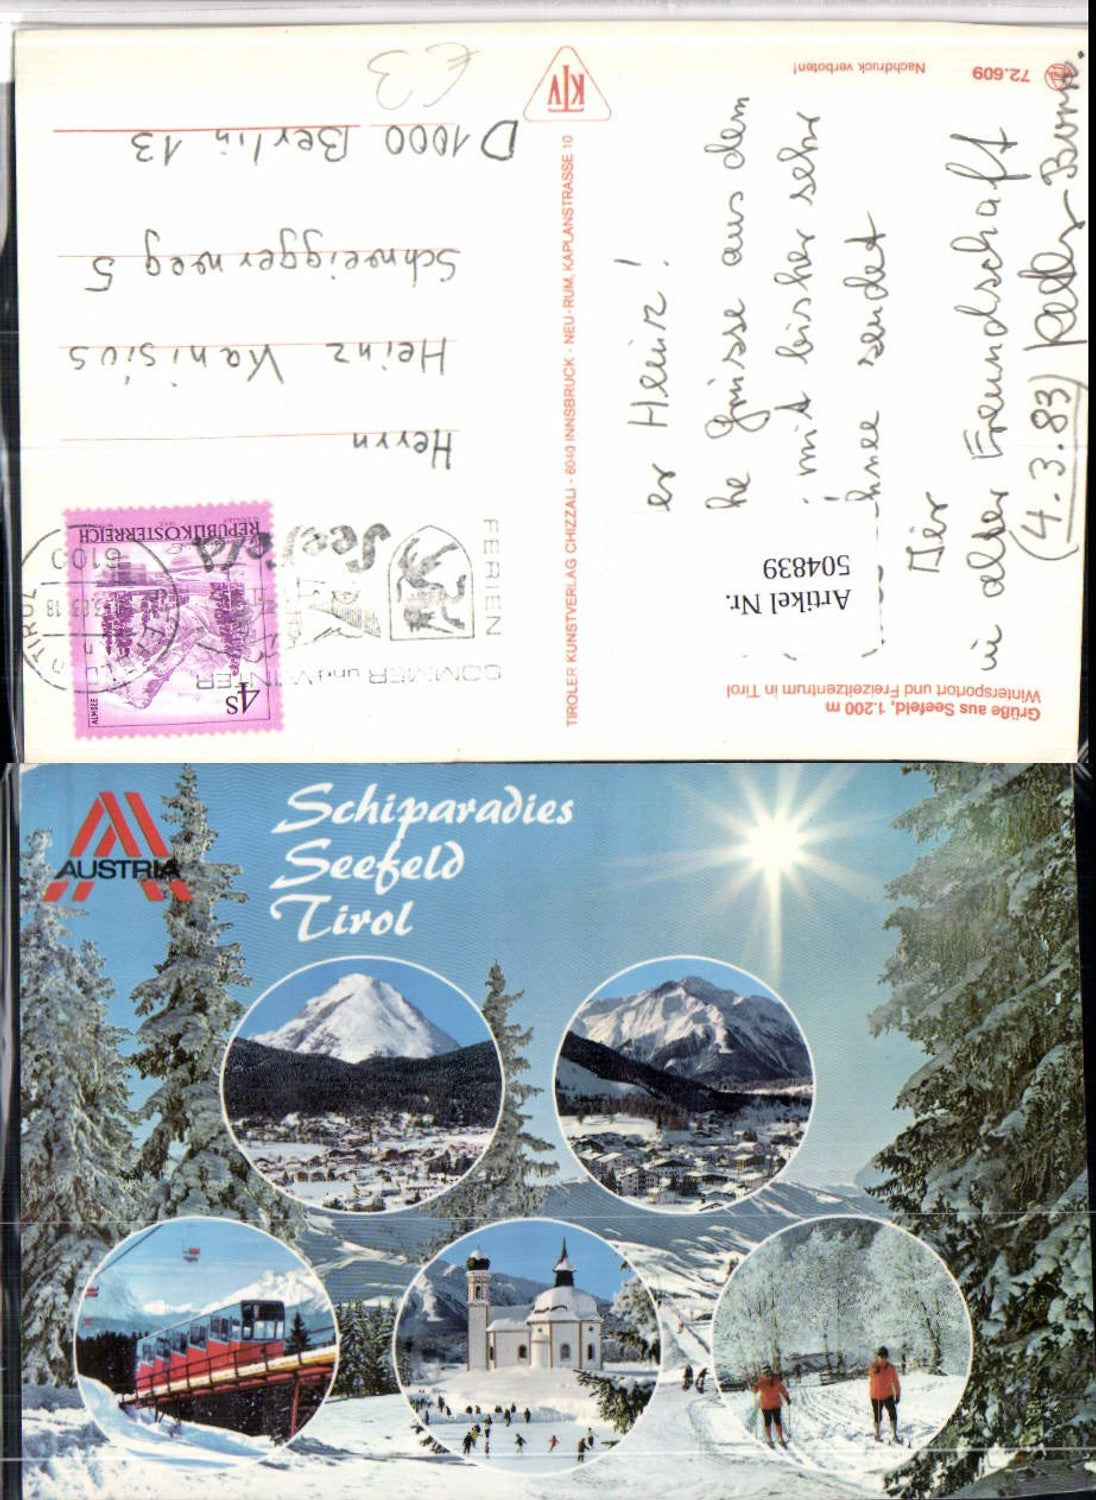 Grüße aus Seefeld, 1.200 m
Wintersportort und Freizeitzentrum in Tirol
Artikel Nr.
504839
er Heinz!
he Grüsse aus dem
mit bisher sehr
sendet
Dir
in alter Freundschaft
(4.3.83)
72.609
Nachdruck verboten!
TIROLER KUNSTVERLAG CHIZZALI · 6040 INNSBRUCK · NEU-RUM, KAPLANSTRASSE 10
KTV
SOMMER und WINTER
FERIEN
Seefeld
TIROL
6100
4S
ALMSEE
REPUBLIK ÖSTERREICH
Herrn
Heinz Kanisius
Schneiggerweg 5
D 1000 Berlin 13
€3
AUSTRIA
Schiparadies
Seefeld
Tirol